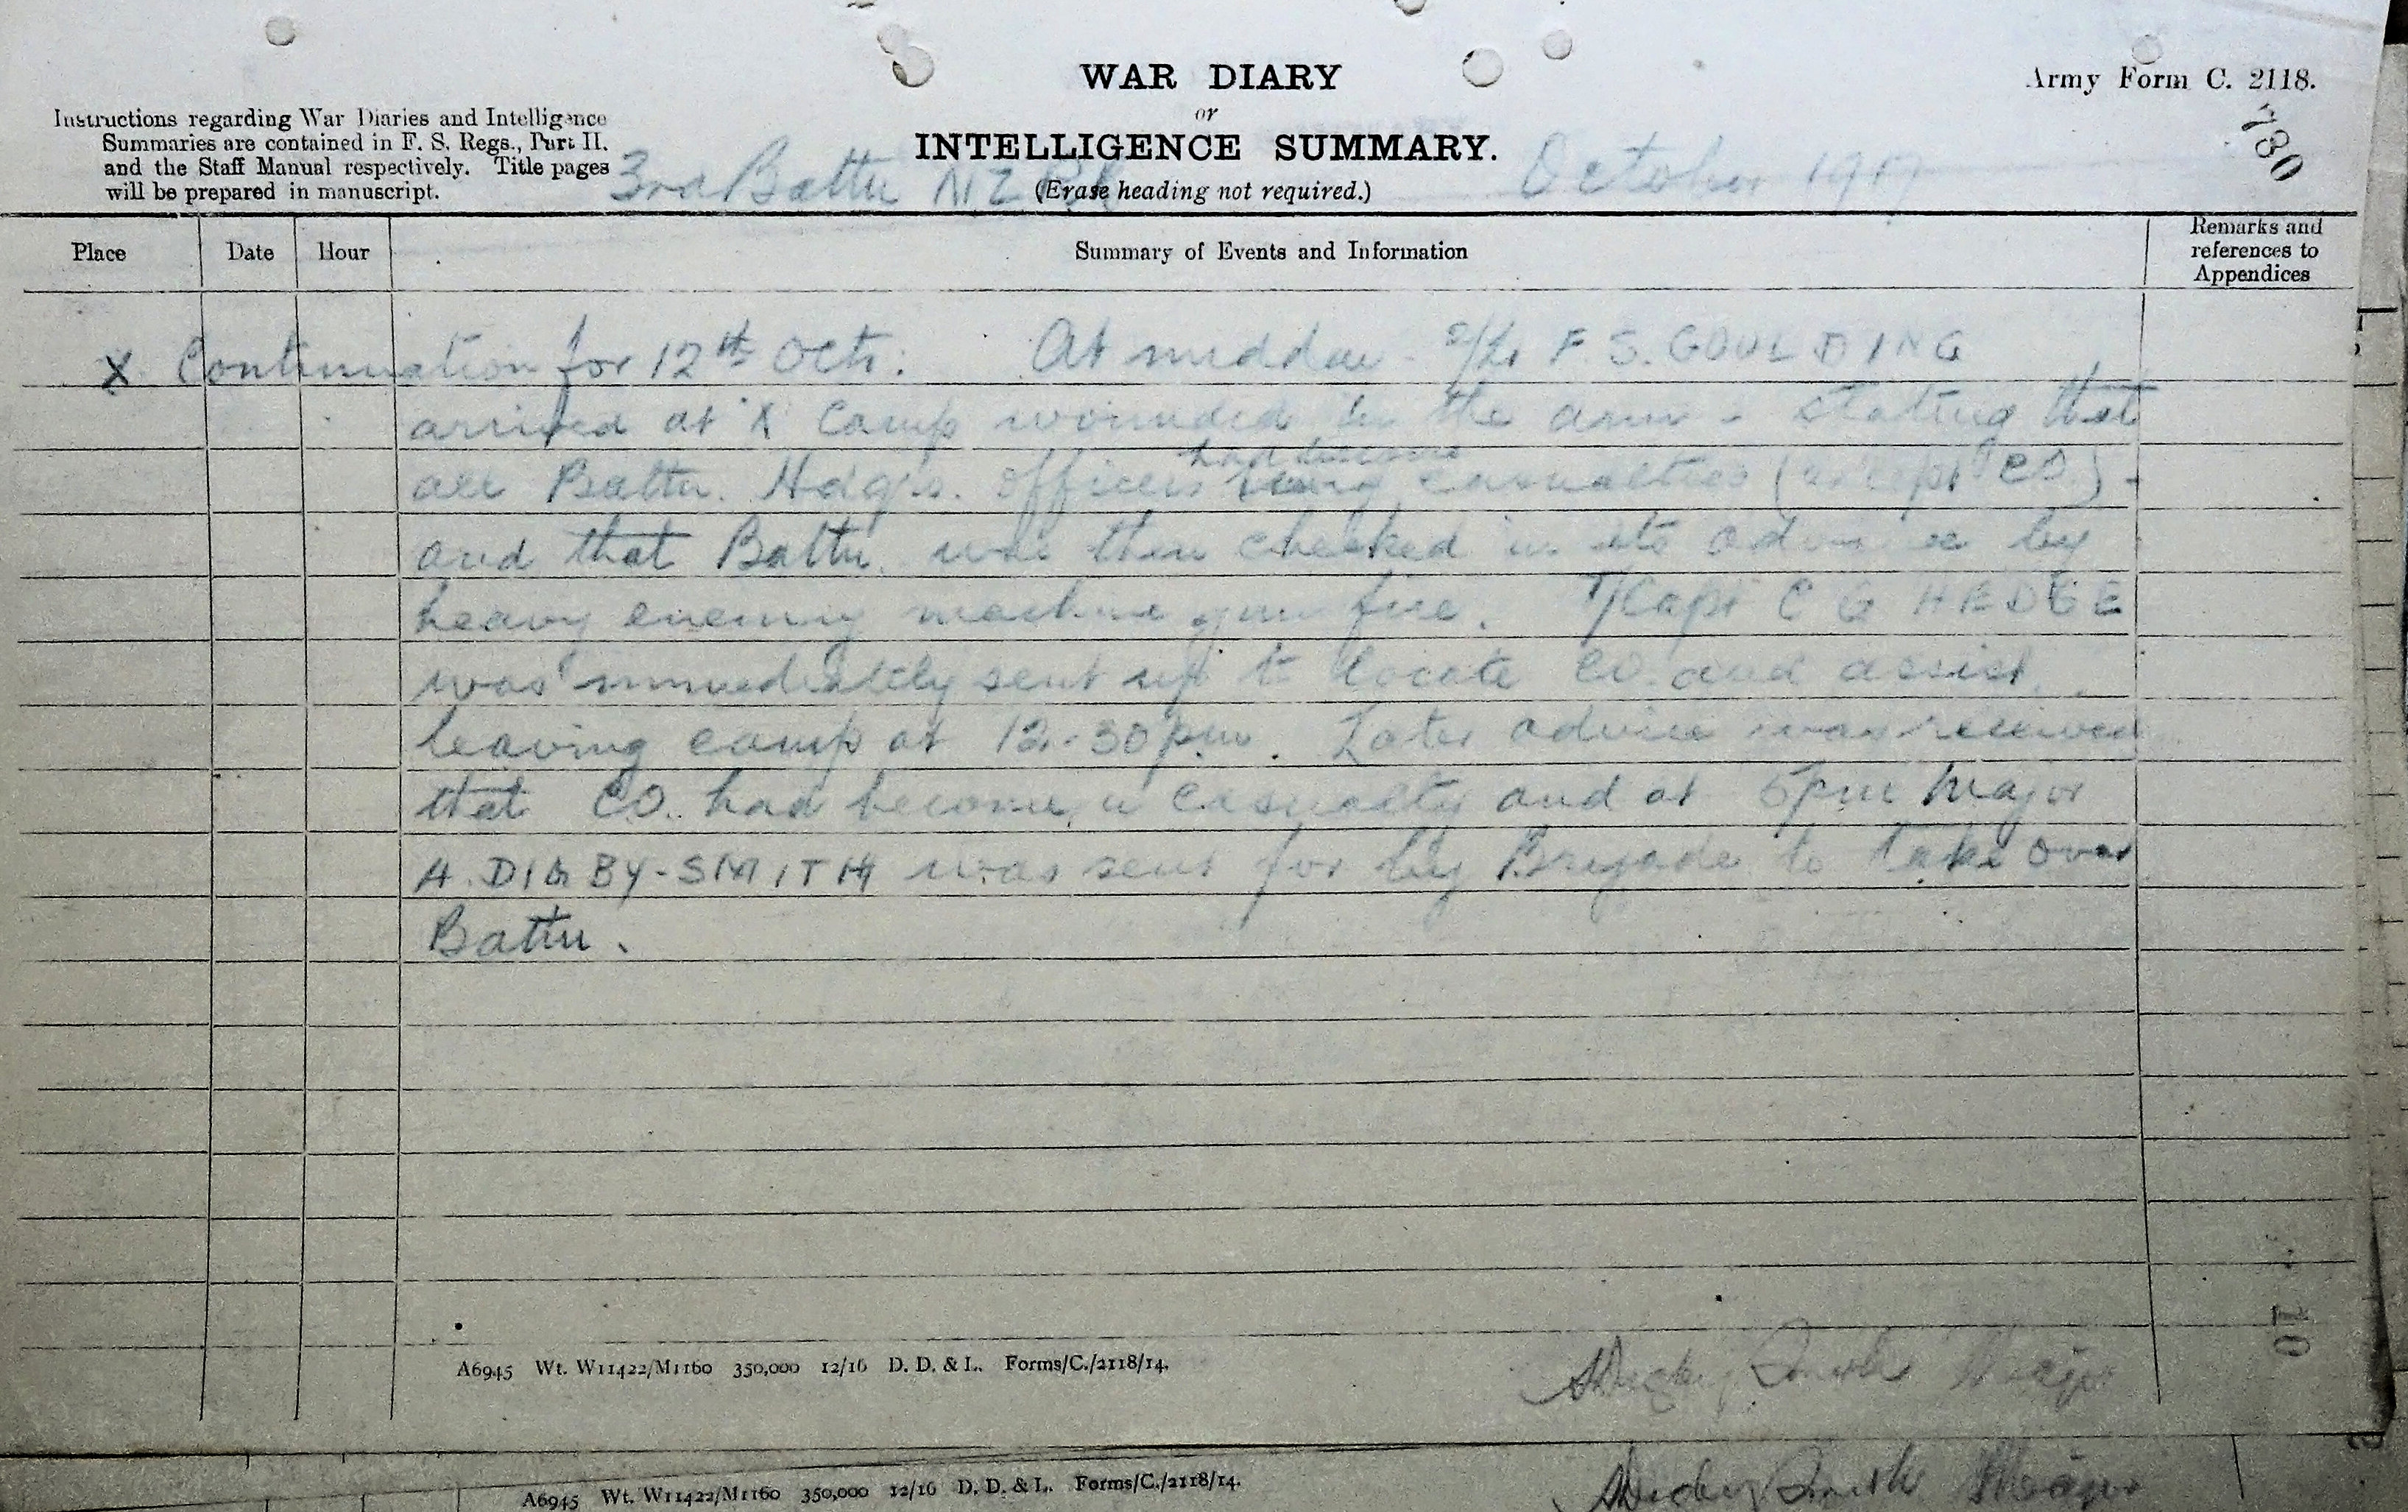 WAR DIARY
or
INTELLIGENCE SUMMARY.
(Erase heading not required.)
Army Form C. 2118.
780
Instructions regarding War Diaries and Intelligence
Summaries are contained in F. S. Regs., Part II.
and the Staff Manual respectively. Title pages
will be prepared in manuscript.
3rd Battn NZRB October 1917
Place Date Hour Summary of Events and Information Remarks and references to Appendices
X Continuation for 12th Octr: At midday 2/Lt F. S. GOULDING
arrived at X Camp wounded in the arm - stating that
all Battn. Hdqrs. officers had become casualties (except CO) -
and that Battn. was then checked in its advance by
heavy enemy machine gun fire. T/Capt C G HEDGE
was immediately sent up to locate CO. and assist
leaving camp at 12.30pm. Later advice was received
that CO. had become a casualty and at 5pm Major
A. DIGBY-SMITH was sent for by Brigade to take over
Battn.
A6945 Wt. W11422/M1160 350,000 12/16 D. D. & L. Forms/C./2118/14.
A Digby Smith Major
A6945 Wt. W11422/M1160 350,000 12/16 D. D. & L. Forms/C./2118/14.
A Digby Smith Major